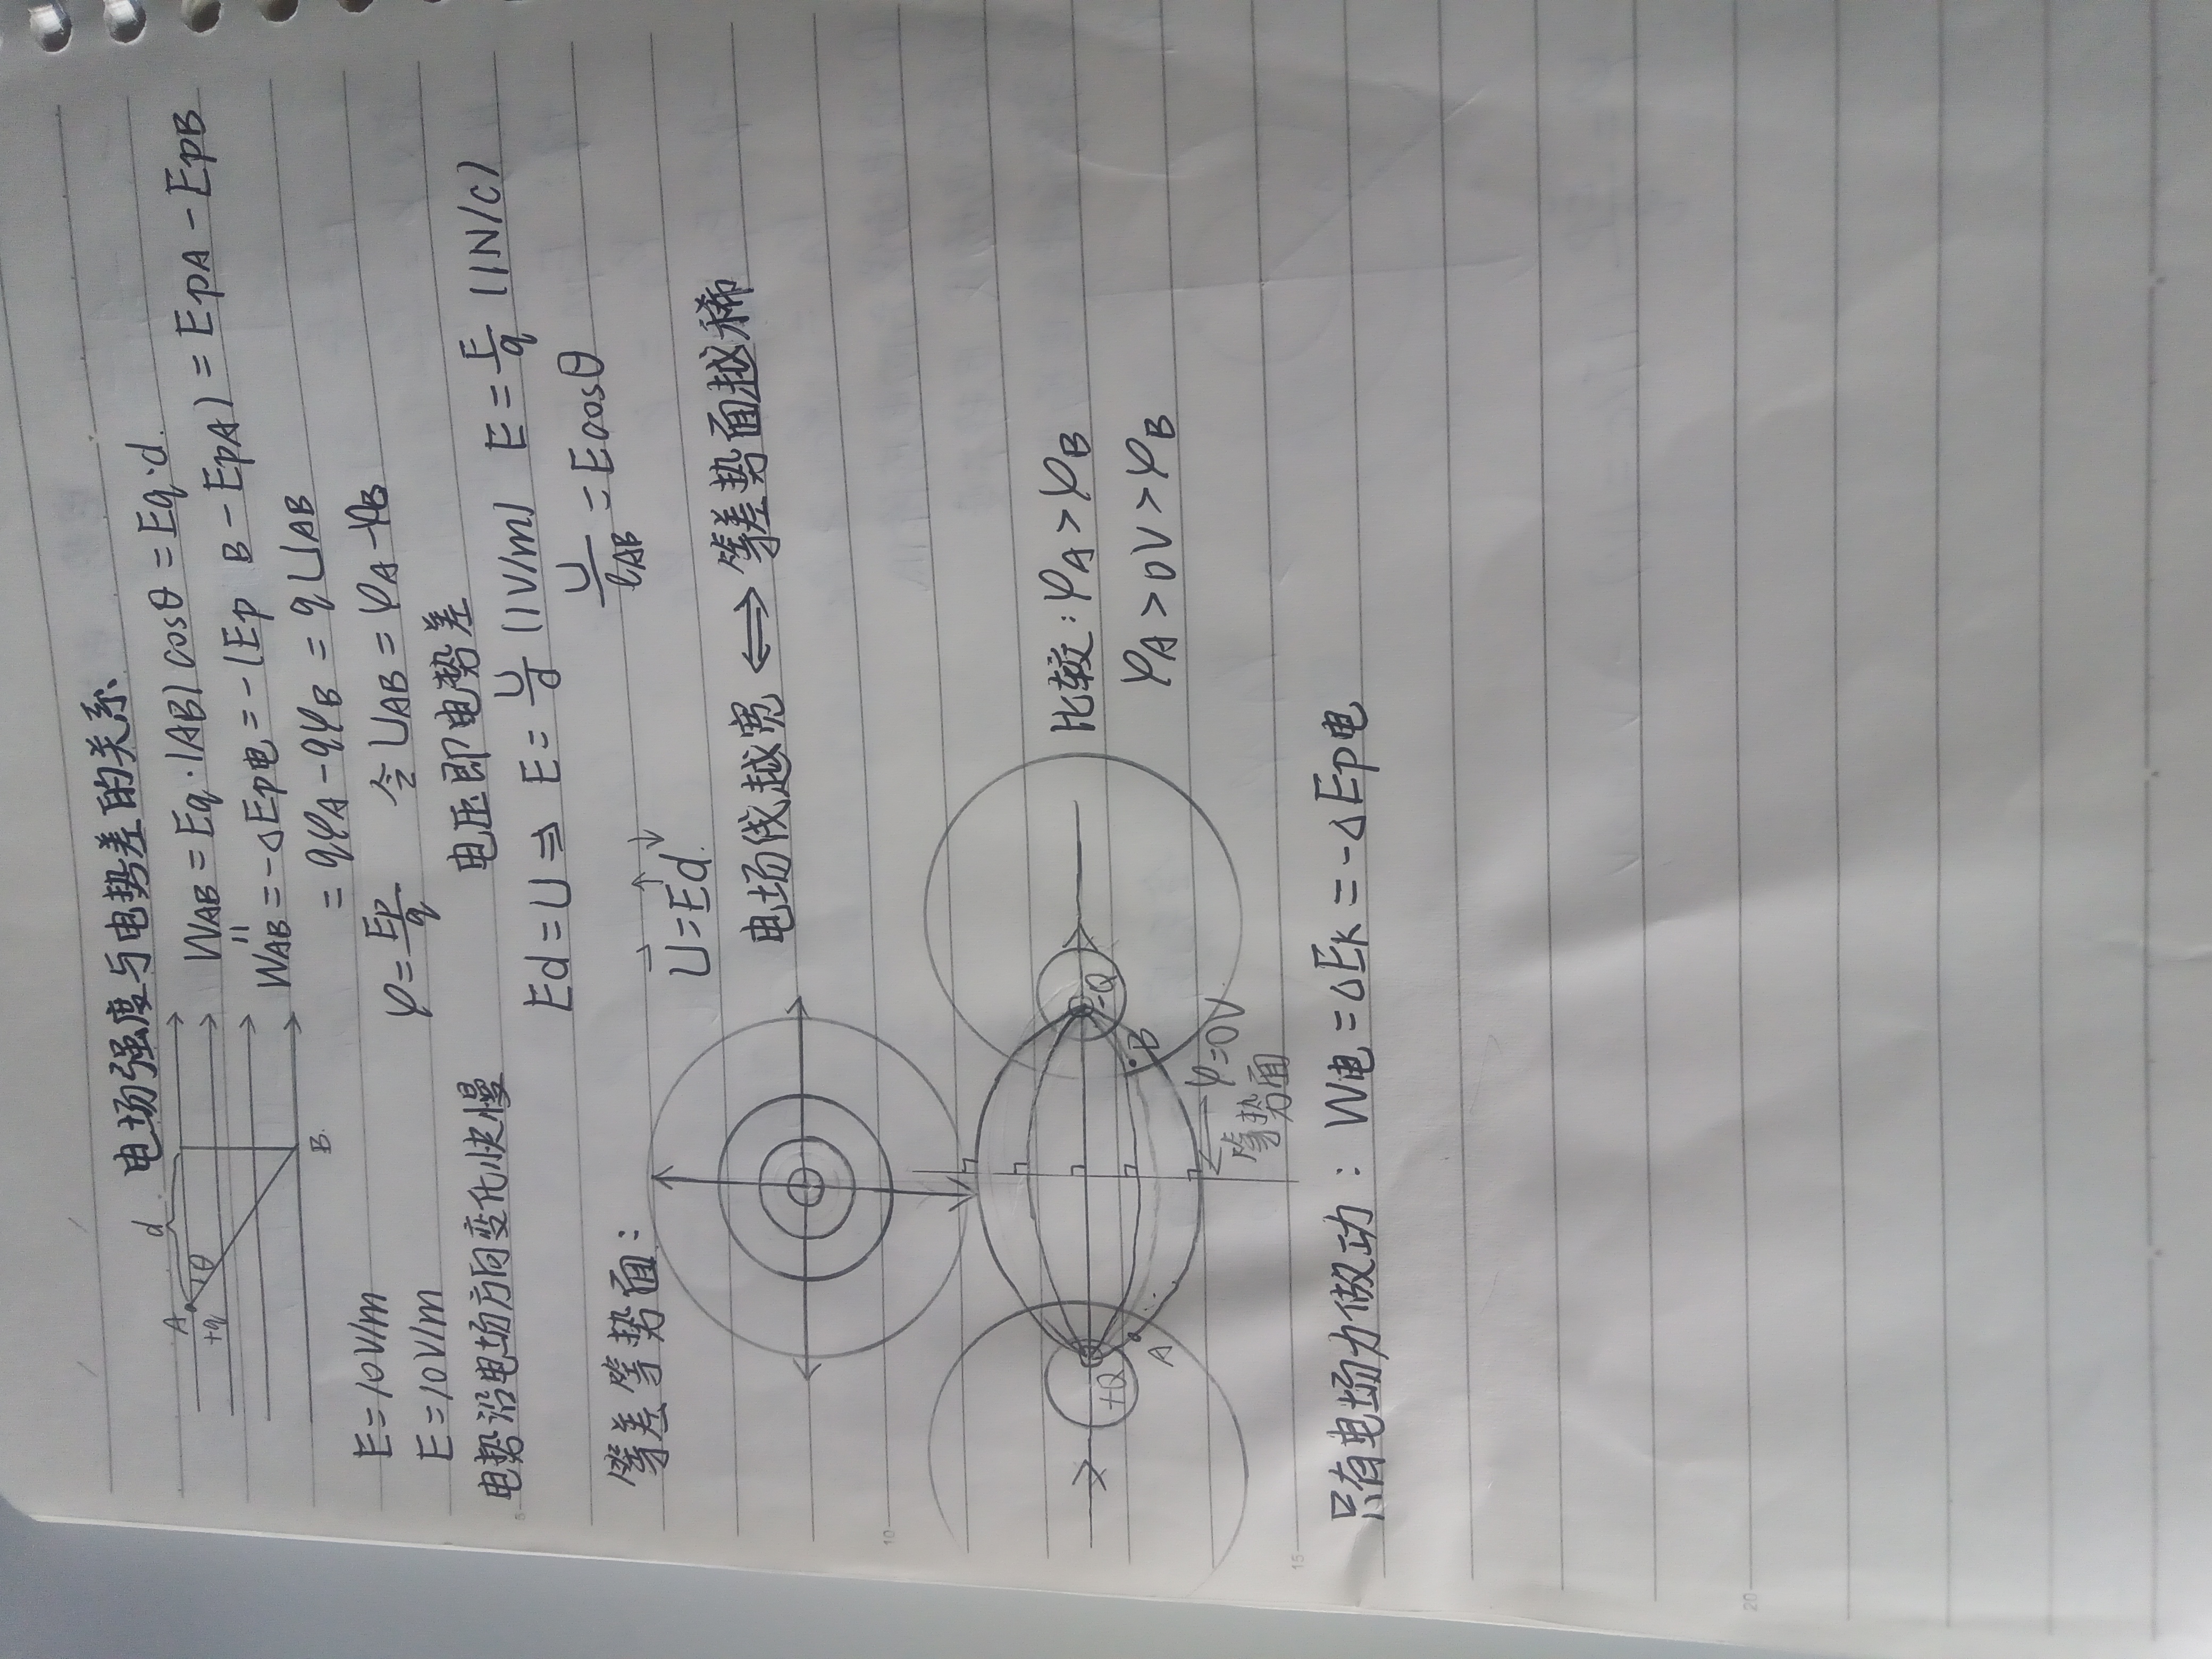 电场强度与电势差的关系
A d
+q θ
B
WAB = Eq·|AB|cosθ = Eq·d.
=
WAB = -ΔEp电 = -(EpB - EpA) = EpA - EpB
= qφA - qφB = qUAB
E=10V/m φ=Ep/q 令UAB=φA-φB
E=10V/m 电压即电势差
电势沿电场方向变化快慢 Ed=U ⇒ E=U/d (1V/m) E=F/q (1N/C)
U/lAB = Ecosθ
等差等势面: U=Ed
电场线越宽 ⇔ 等差势面越稀
+Q -Q
A B
φ=0V
等势面
比较: φA>φB
φA>0V>φB
只有电场力做功: W电=ΔEk=-ΔEp电
5
10
15
20